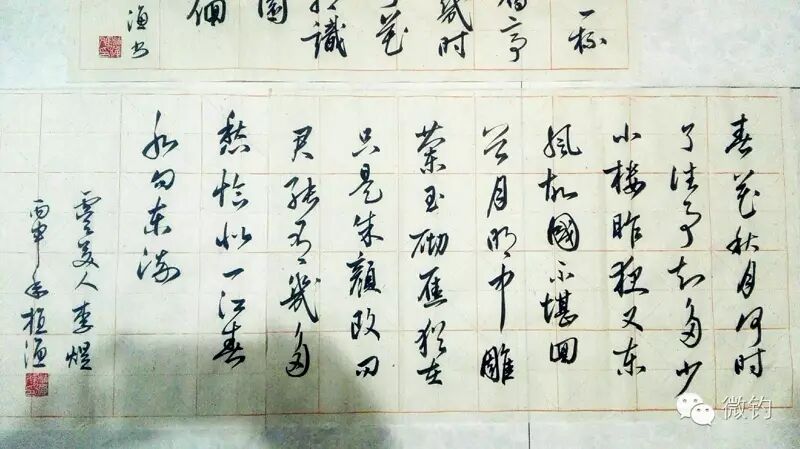 一杯
亭
时
花
識
渔书
春花秋月何时
了往事知多少
小楼昨夜又东
風故國不堪回
首月明中雕
蘭玉砌應猶在
只是朱顏改问
君能有幾多
愁恰似一江春
水向东流
虞美人李煜
丙申 桓渔
微钓